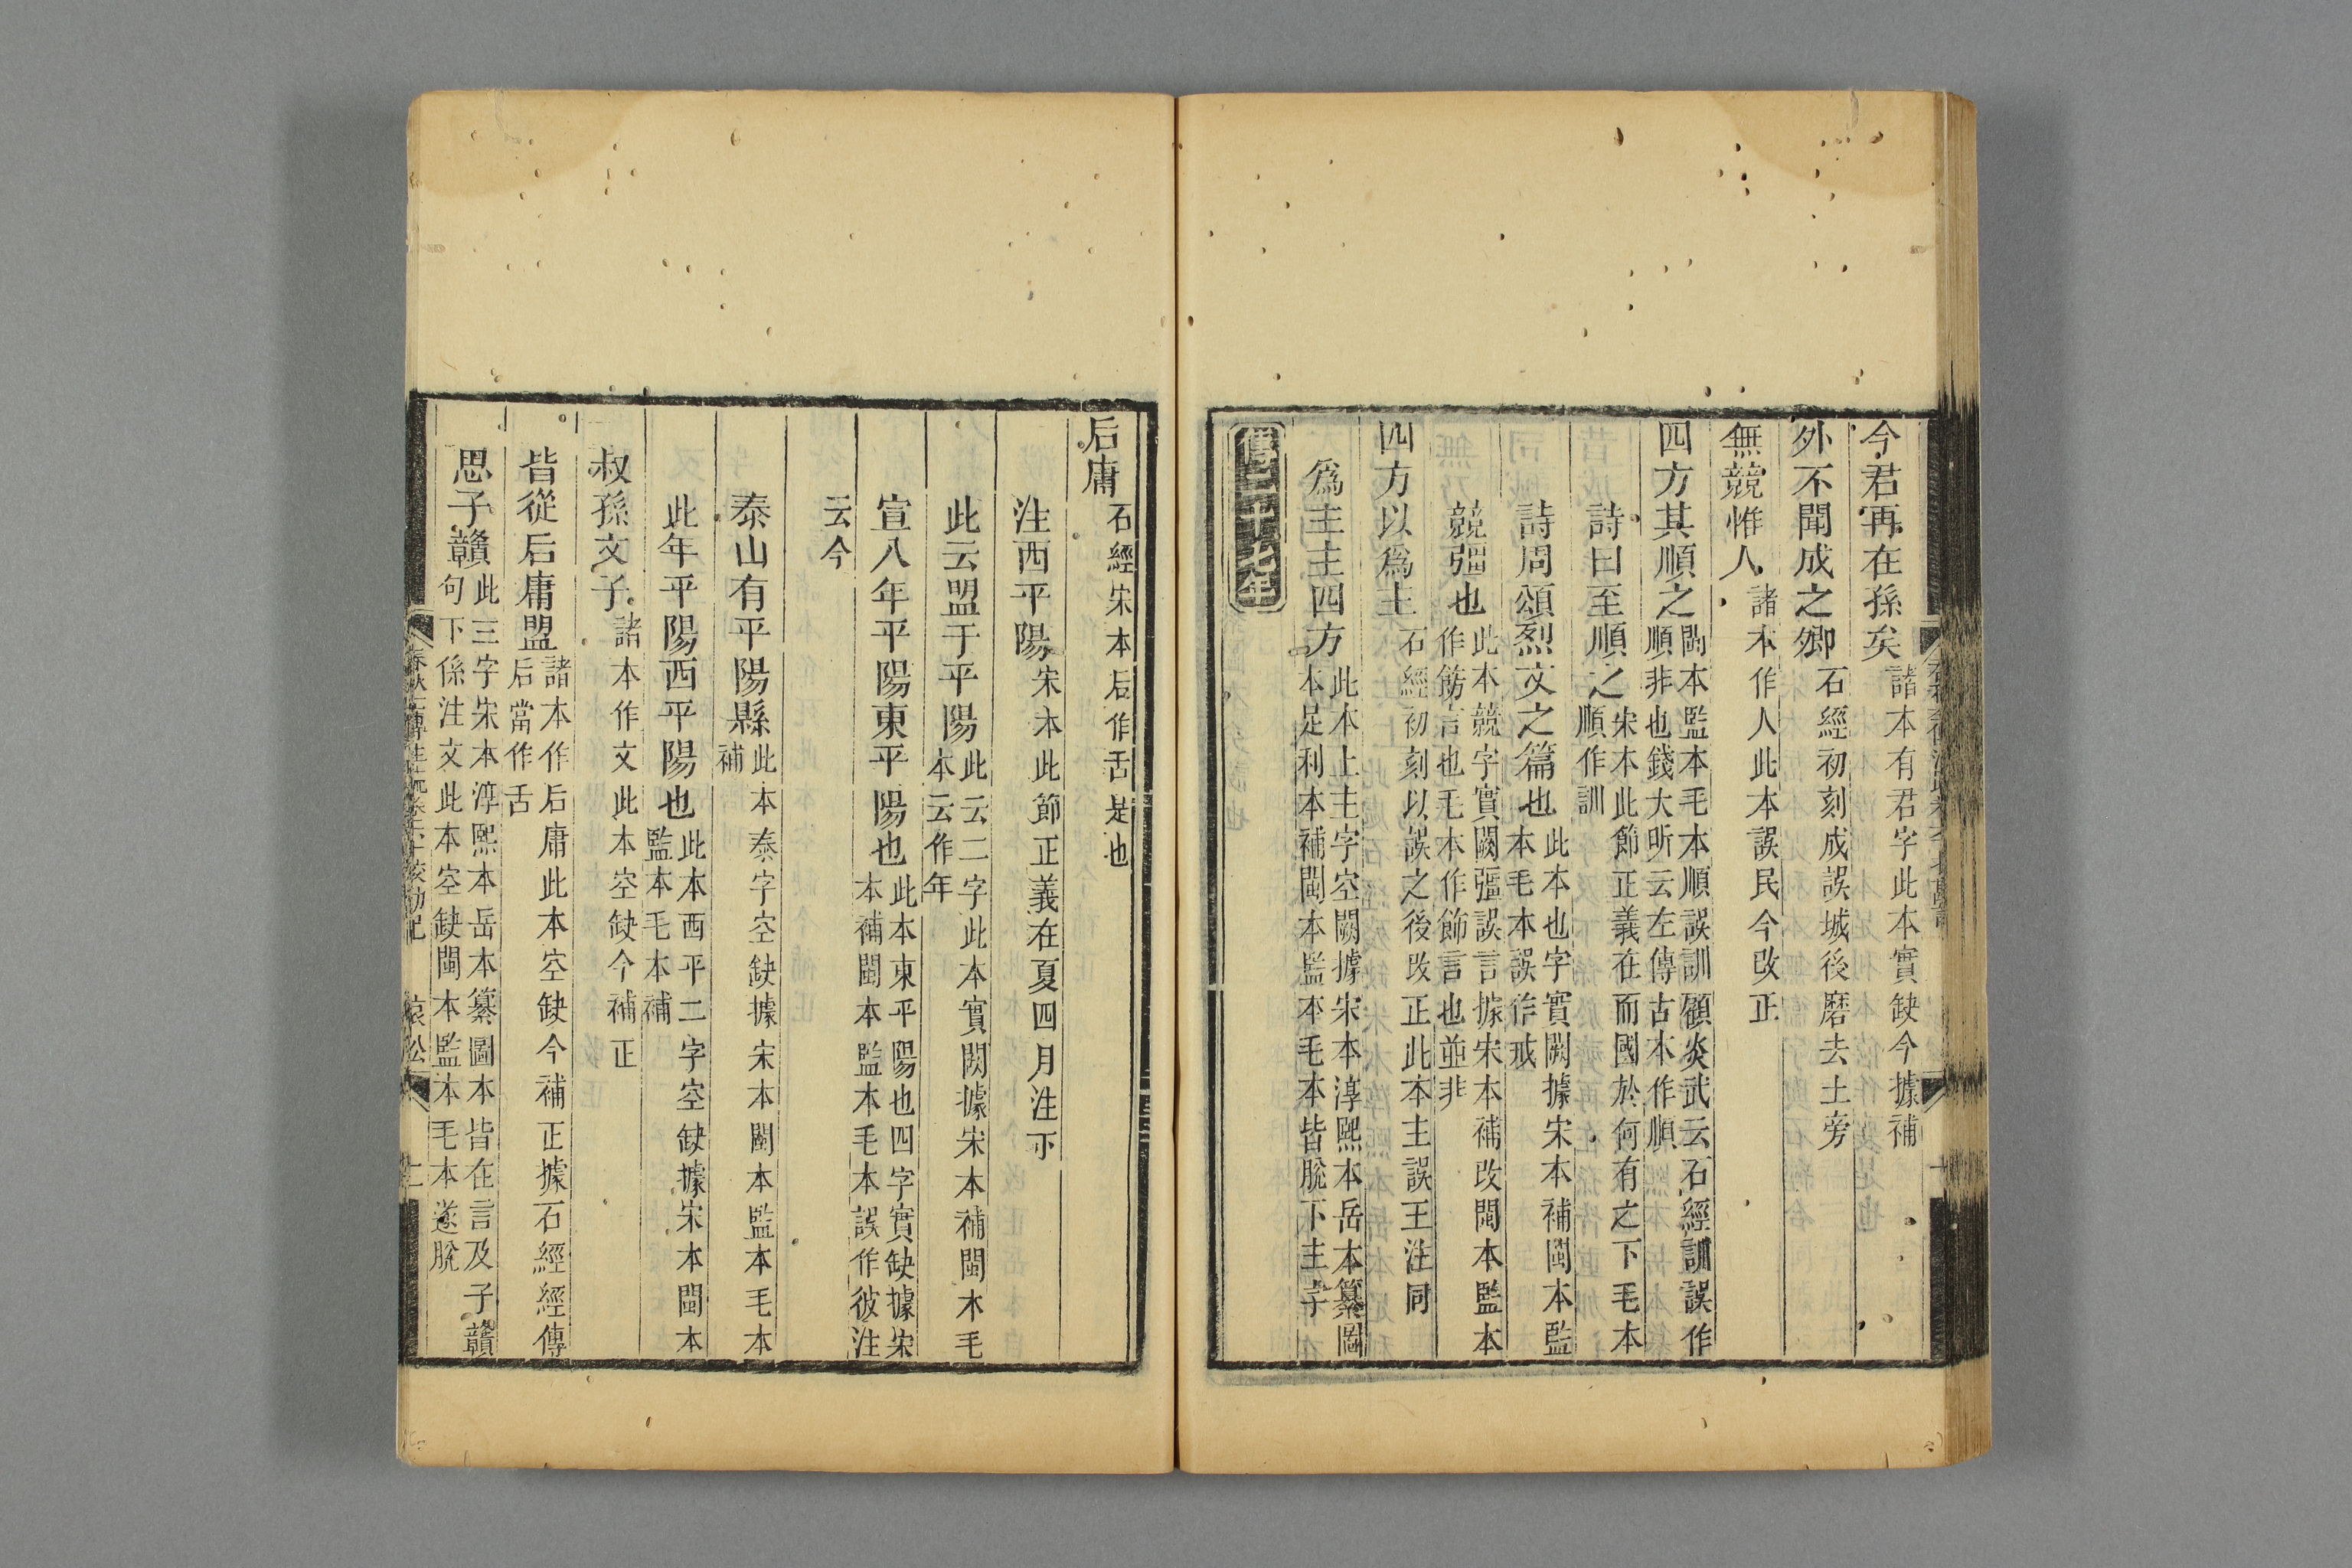 今君再在孫矣諸本有君字此本實缺今據補
外不聞成之卿石經初刻成誤城後磨去土旁
無競惟人諸本作人此本誤民今改正
四方其順之閩本監本毛本順誤訓顧炎武云石經訓誤作
順非也錢大昕云左傳古本作順
詩曰至順之宋本此節正義在而國於何有之下毛本
順作訓
詩周頌烈文之篇也此本也字實闕據宋本補閩本監
本毛本誤作戒
競彊也此本競字實闕彊誤言據宋本補改閩本監本
作飭言也毛本作飾言也並非
四方以爲主石經初刻以誤之後改正此本主誤王注同
爲主主四方此本上主字空闕據宋本淳熙本岳本纂圖
本足利本補閩本監本毛本皆脫下主字
傳二十七年
后庸石經宋本后作舌是也
注西平陽宋本此節正義在夏四月注下
此云盟于平陽此云二字此本實闕據宋本補閩本毛
本云作年
宣八年平陽東平陽也此本東平陽也四字實缺據宋
本補閩本監本毛本誤作彼注
云今
泰山有平陽縣此本泰字空缺據宋本閩本監本毛本
補
此年平陽西平陽也此本西平二字空缺據宋本閩本
監本毛本補
叔孫文子諸本作文此本空缺今補正
皆從后庸盟諸本作后庸此本空缺今補正據石經經傳
后當作舌
思子贛此三字宋本淳熙本岳本纂圖本皆在言及子贛
句下係注文此本空缺閩本監本毛本遂脫